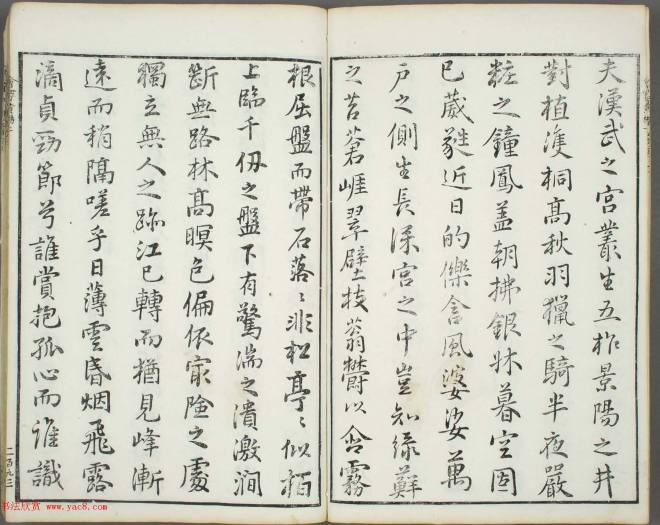 夫漢武之宮叢生五柞景陽之井
對植雙桐高秋羽獵之騎半夜嚴
粧之鐘鳳盖朝拂銀牀暮空固
已葳蕤近日的傑含風婆娑萬
戶之側生長深宮之中豈知綠蘚
之苔蒼崖翠壁枝蓊欝以含霧
根屈盤而帶石落〻非松亭〻似栢
上臨千仞之盤下有驚湍之潰激澗
斷無路林高暝色偏依寂險之處
獨立無人之跡江已轉而猶見峰漸
遠而稍隔嗟乎日薄雲昏烟飛露
滴貞勁節兮誰賞抱孤心而誰識
二百九三
书法欣赏 www.yac8.com